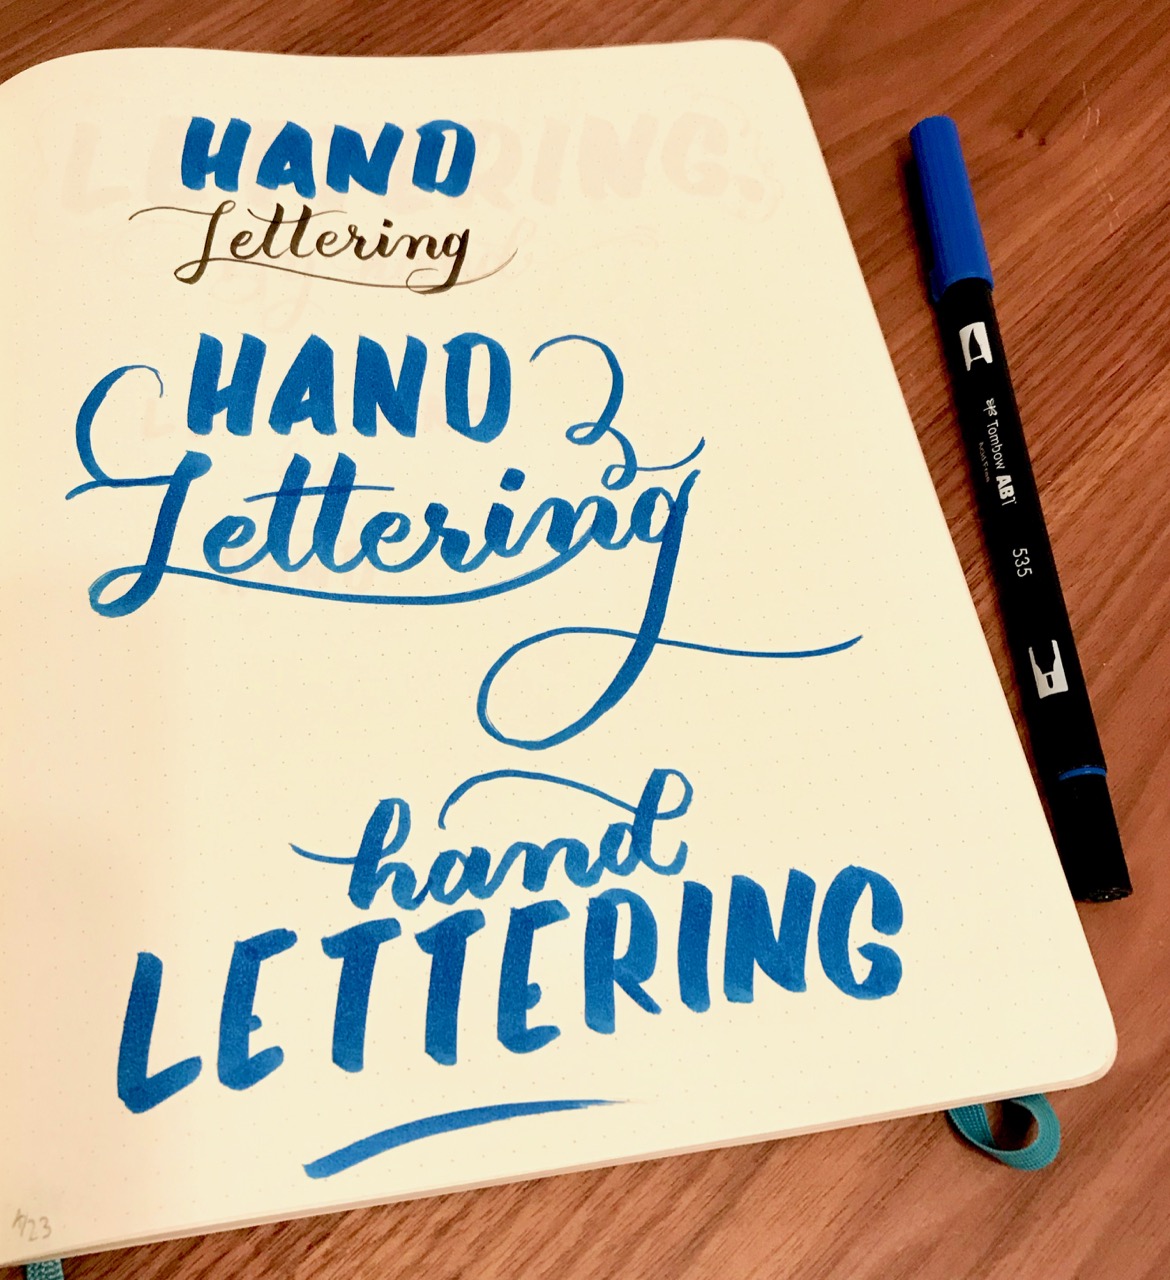 HAND
Lettering
HAND
Lettering
hand
LETTERING
Tombow ABT
535